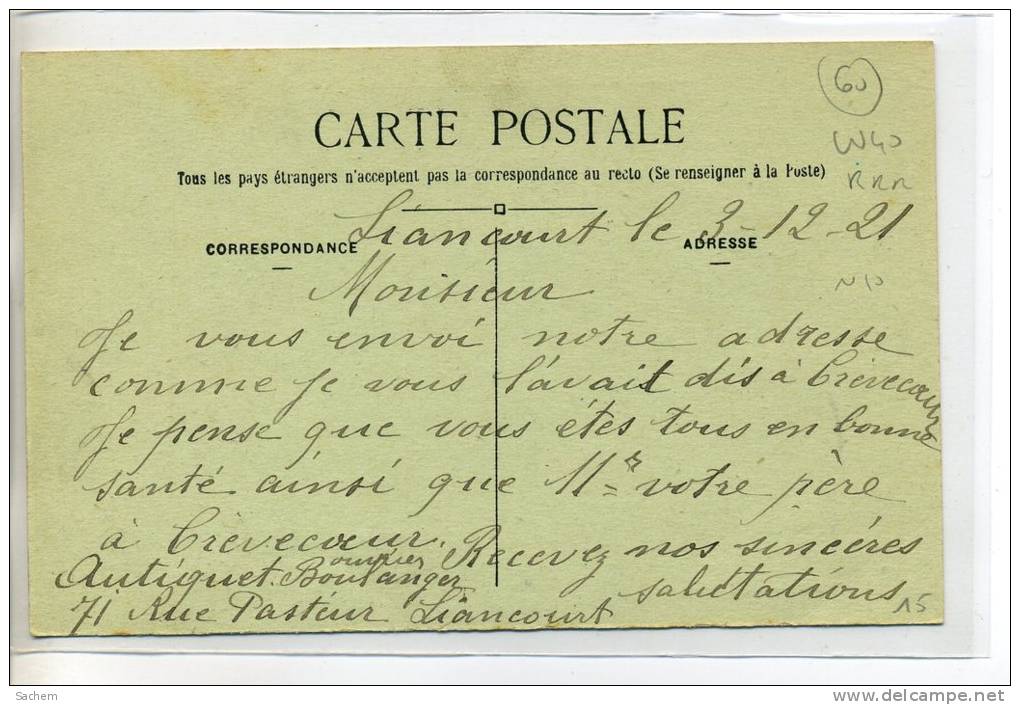 60
CARTE POSTALE
W40
Tous les pays étrangers n'acceptent pas la correspondance au recto (Se renseigner à la Poste)
RRR
Liancourt le 3-12-21
CORRESPONDANCE
ADRESSE
Monsieur
Je vous envoi notre adresse
comme je vous l'avait dis à Crèvecoeur
Je pense que vous étes tous en bonne
santé ainsi que Mr votre père
à Crèvecoeur. Recevez nos sincéres
salutations
Autiquet ouvrier Boulanger
71 Rue Pasteur Liancourt
15
Sachem
www.delcampe.net